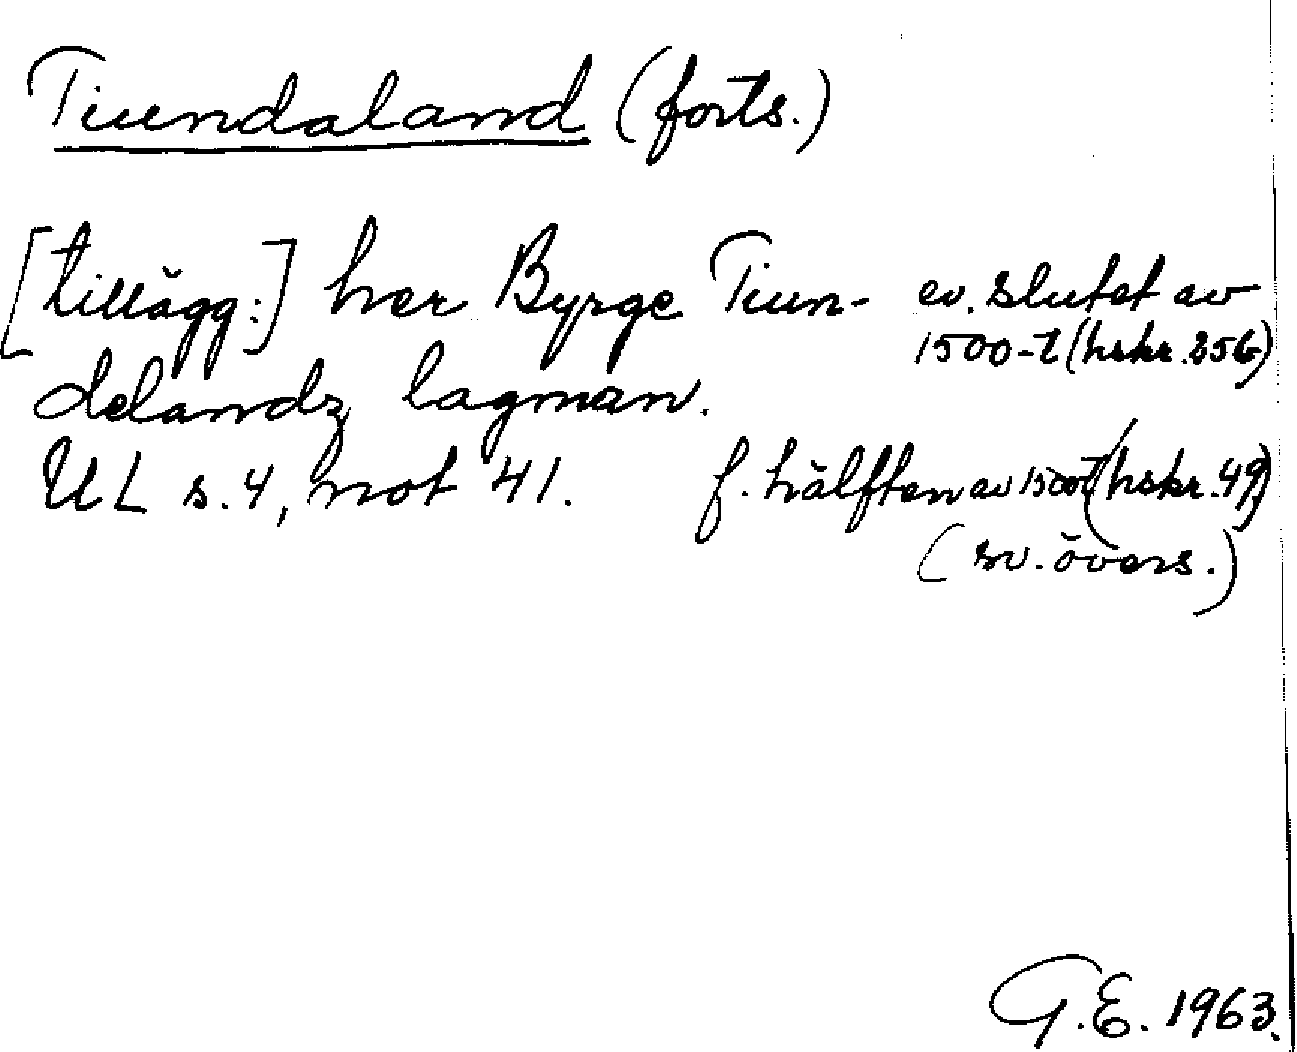 Tiundaland (forts.)
[tillägg:] her Byrge Tiun-
delandz lagman.
UL s. 4, not 41.
ev. slutet av
1500-t (hskr. 356)
f. hälften av 1500-t (hskr. 49)
(sv. övers.)
G.E. 1963.